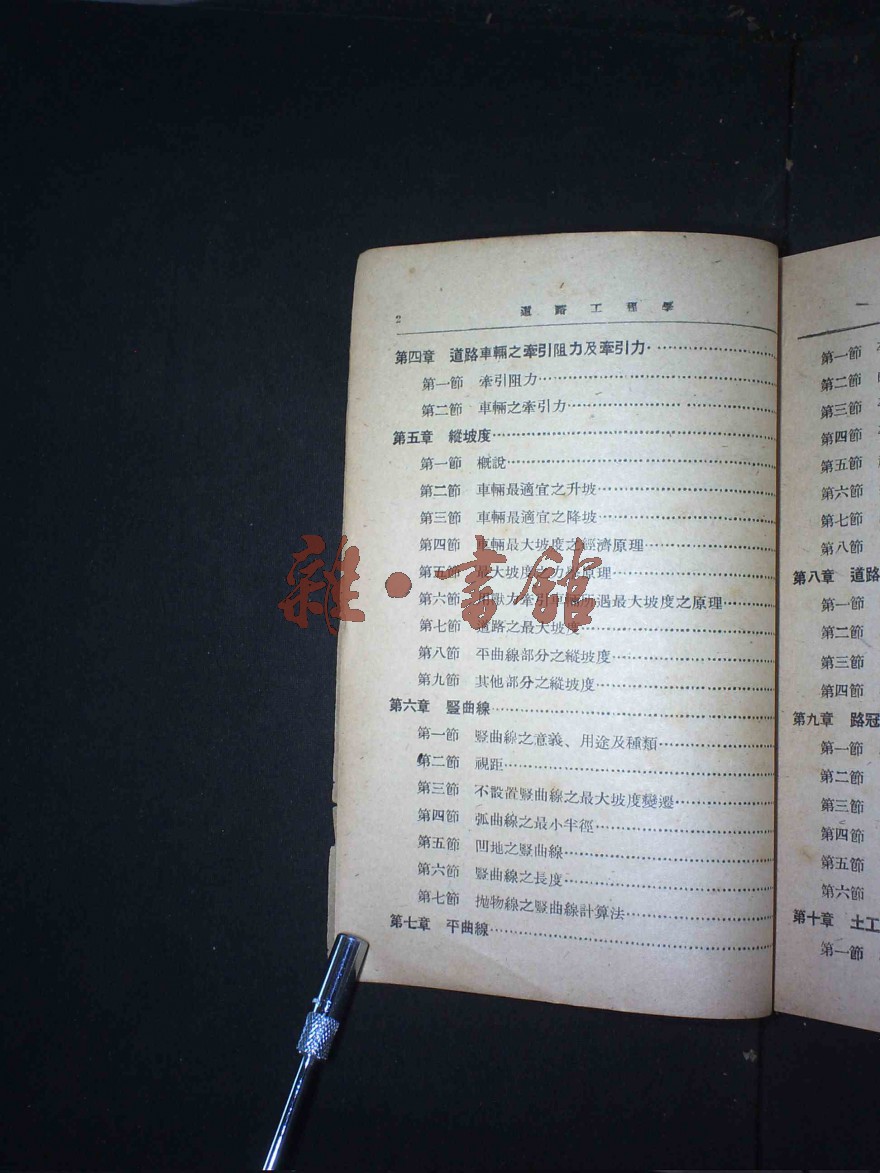 2
道路工程學
第四章 道路車輛之牽引阻力及牽引力
第一節 牽引阻力
第二節 車輛之牽引力
第五章 縱坡度
第一節 概說
第二節 車輛最適宜之升坡
第三節 車輛最適宜之降坡
第四節 車輛最大坡度之經濟原理
第五節 最大坡度之力學原理
第六節 用獸力牽引車輛所遇最大坡度之原理
第七節 道路之最大坡度
第八節 平曲線部分之縱坡度
第九節 其他部分之縱坡度
第六章 豎曲線
第一節 豎曲線之意義、用途及種類
第二節 視距
第三節 不設置豎曲線之最大坡度變遷
第四節 弧曲線之最小半徑
第五節 凹地之豎曲線
第六節 豎曲線之長度
第七節 拋物線之豎曲線計算法
第七章 平曲線
雜·書館
一
第一節
第二節
第三節
第四節
第五節
第六節
第七節
第八節
第八章 道路
第一節
第二節
第三節
第四節
第九章 路冠
第一節
第二節
第三節
第四節
第五節
第六節
第十章 土工
第一節